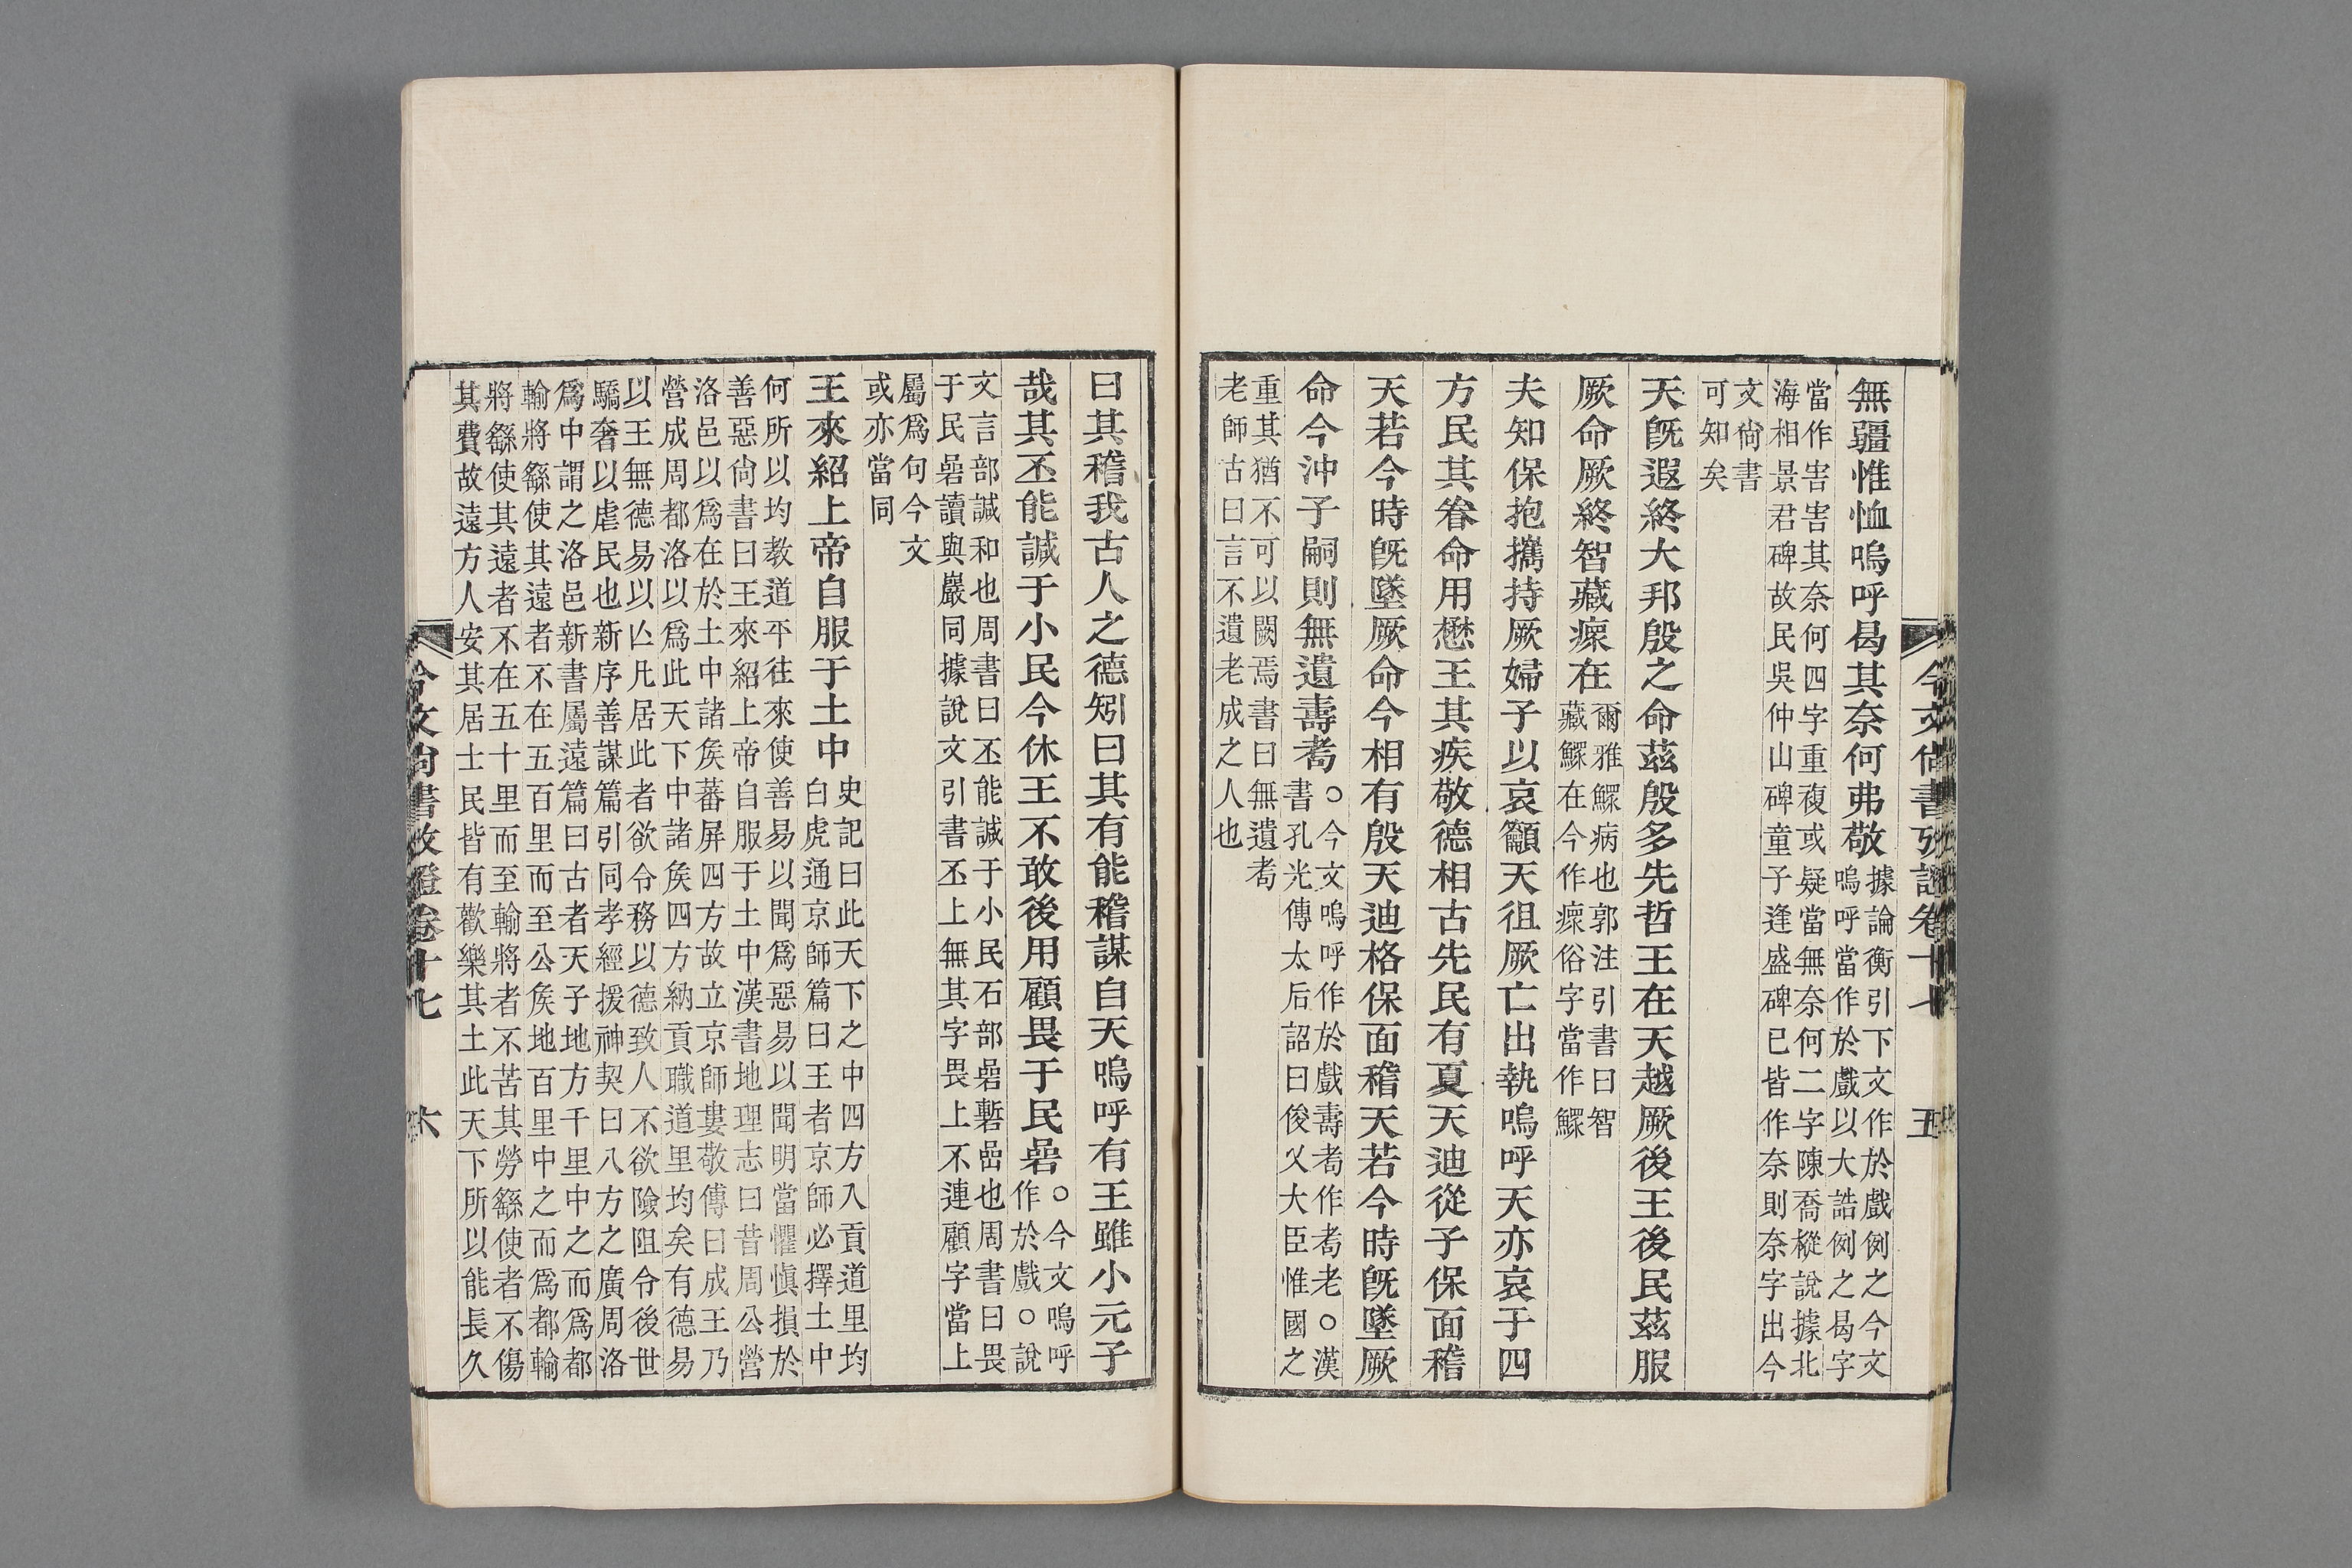 今文尙書攷證卷十七　五
無疆惟恤嗚呼曷其奈何弗敬據論衡引下文作於戲例之今文
嗚呼當作於戲以大誥例之曷字
當作害害其奈何四字重複或疑當無奈何二字陳喬樅說據北
海相景君碑故民吳仲山碑童子逢盛碑巳皆作奈則奈字出今
文尙書
可知矣
天旣遐終大邦殷之命茲殷多先哲王在天越厥後王後民茲服
厥命厥終智藏瘝在爾雅鰥病也郭注引書曰智
藏鰥在今作瘝俗字當作鰥
夫知保抱攜持厥婦子以哀籲天徂厥亡出執嗚呼天亦哀于四
方民其眷命用懋王其疾敬德相古先民有夏天迪從子保面稽
天若今時旣墜厥命今相有殷天迪格保面稽天若今時旣墜厥
命今沖子嗣則無遺壽耇○今文嗚呼作於戲壽耇作耇老○漢
書孔光傳太后詔曰俊乂大臣惟國之
重其猶不可以闕焉書曰無遺耇
老師古曰言不遺老成之人也
曰其稽我古人之德矧曰其有能稽謀自天嗚呼有王雖小元子
哉其丕能諴于小民今休王不敢後用顧畏于民碞○今文嗚呼
作於戲○說
文言部諴和也周書曰丕能諴于小民石部碞磛嵒也周書曰畏
于民碞讀與巖同據說文引書丕上無其字畏上不連顧字當上
屬爲句今文
或亦當同
王來紹上帝自服于土中史記曰此天下之中四方入貢道里均
白虎通京師篇曰王者京師必擇土中
何所以均教道平往來使善易以聞爲惡易以聞明當懼愼損於
善惡尙書曰王來紹上帝自服于土中漢書地理志曰昔周公營
洛邑以爲在於土中諸矦蕃屏四方故立京師婁敬傳曰成王乃
營成周都洛以爲此天下中諸矦四方納貢職道里均矣有德易
以王無德易以亾凡居此者欲令務以德致人不欲險阻令後世
驕奢以虐民也新序善謀篇引同孝經援神契曰八方之廣周洛
爲中謂之洛邑新書屬遠篇曰古者天子地方千里中之而爲都
輸將繇使其遠者不在五百里而至公矦地百里中之而爲都輸
將繇使其遠者不在五十里而至輸將者不苦其勞繇使者不傷
其費故遠方人安其居士民皆有歡樂其土此天下所以能長久
今文尙書攷證卷十七　六